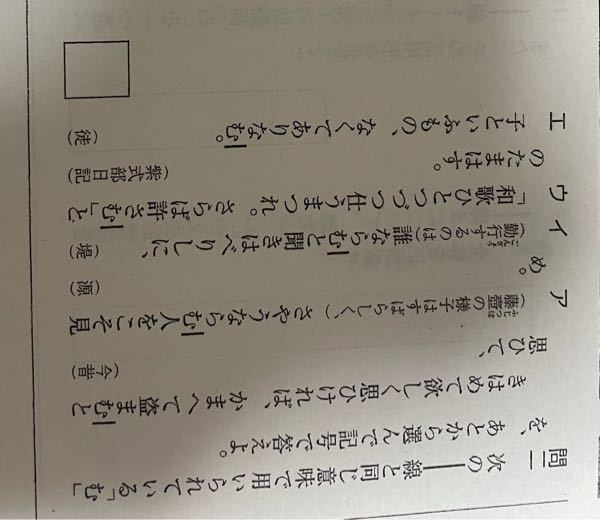 問二 次の――線と同じ意味で用いられている「む」
を、あとから選んで記号で答えよ。
きはめて欲しく思ひければ、かまへて盗まむと
思ひて、 (今昔)
ふじつぼ
ア (藤壺の様子はすばらしく、)さやうならむ人をこそ見
め。 (源)
ごんぎょう
イ (勤行するのは)誰ならむと聞きはべりしに、 (堤)
ウ 「和歌ひとつづつ仕うまつれ。さらば許さむ」と、
のたまはす。 (紫式部日記)
エ 子といふもの、なくてありなむ。 (徒)